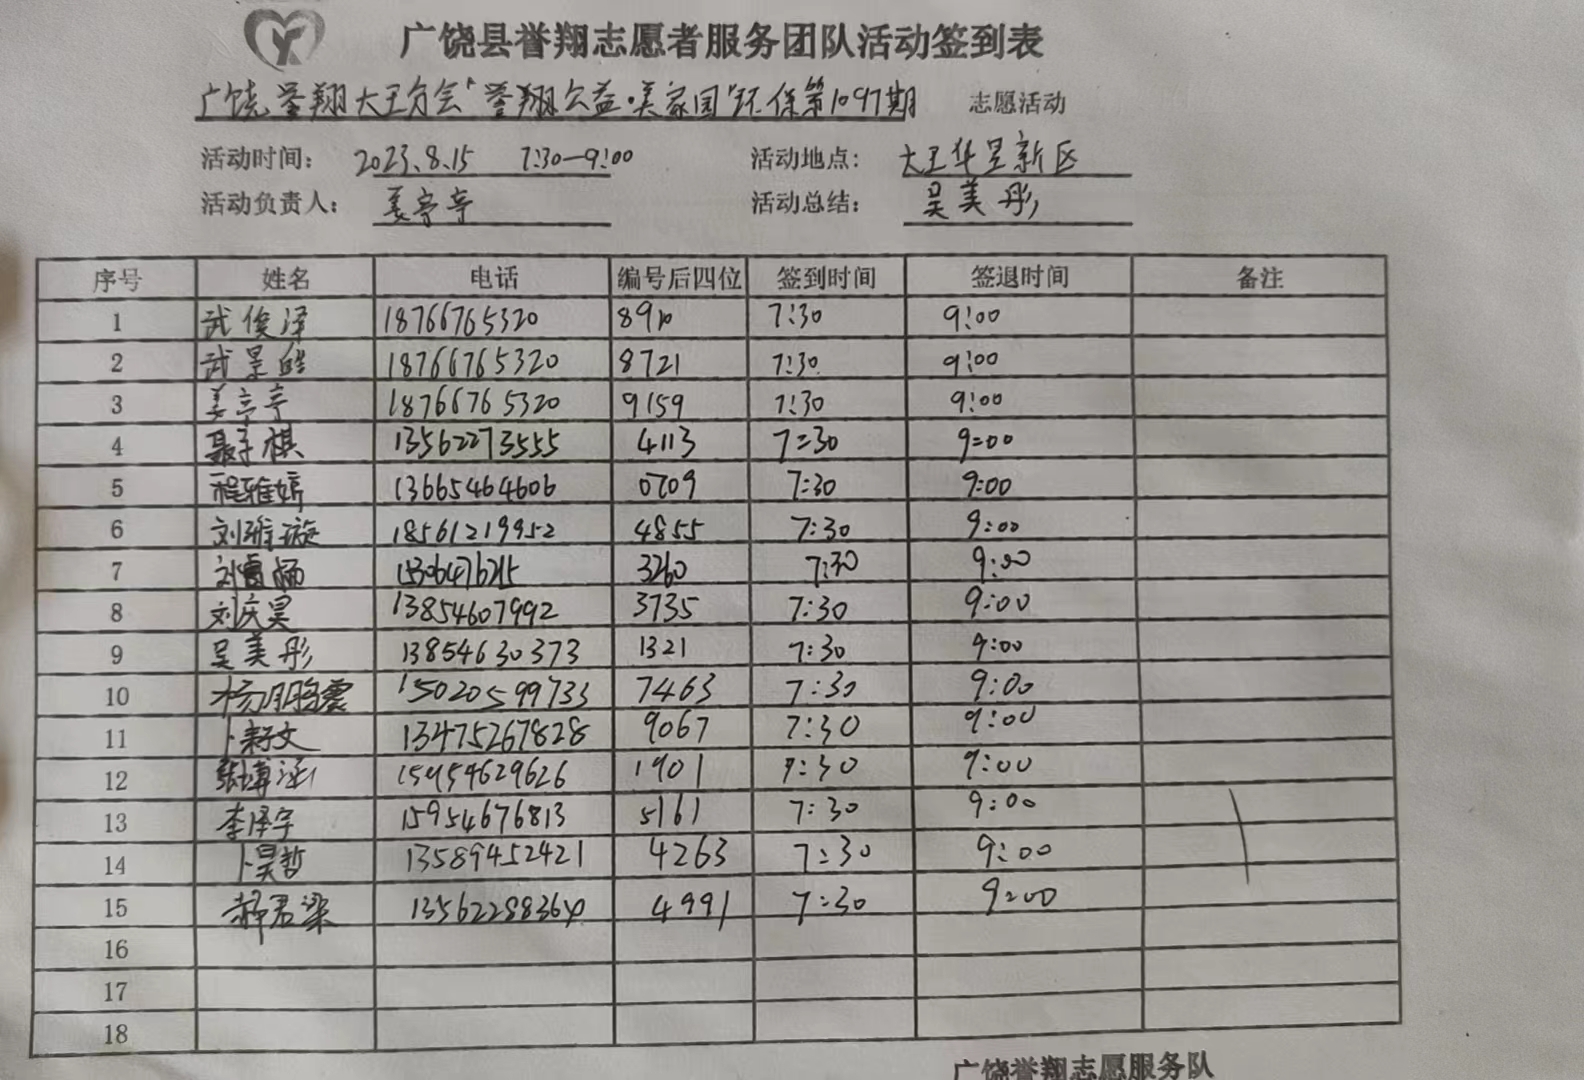 广饶县誉翔志愿者服务团队活动签到表
广饶誉翔大王分会“誉翔公益·美家园”环保第1097期 志愿活动
活动时间： 2023.8.15 7:30—9:00 活动地点: 大王华星新区
活动负责人： 姜亭亭 活动总结： 吴美彤
序号 姓名 电话 编号后四位 签到时间 签退时间 备注
1 武俊泽 18766765320 8910 7:30 9:00
2 武景皓 18766765320 8721 7:30 9:00
3 姜亭亭 18766765320 9159 7:30 9:00
4 聂子棋 13562273555 4113 7:30 9:00
5 程雅婷 13665464606 0709 7:30 9:00
6 刘雅璇 18561219952 4855 7:30 9:00
7 刘 3260 7:30 9:00
8 刘庆昊 13854607992 3735 7:30 9:00
9 吴美彤 13854630373 1321 7:30 9:00
10 杨朋震 15020599733 7463 7:30 9:00
11 卜文 13475267828 9067 7:30 9:00
12 张博涵 15954629626 1901 7:30 9:00
13 李泽宇 15954676813 5161 7:30 9:00
14 卜昊哲 13589452421 4263 7:30 9:00
15 郝君梁 13562288364 4991 7:30 9:00
16
17
18
广饶誉翔志愿服务队